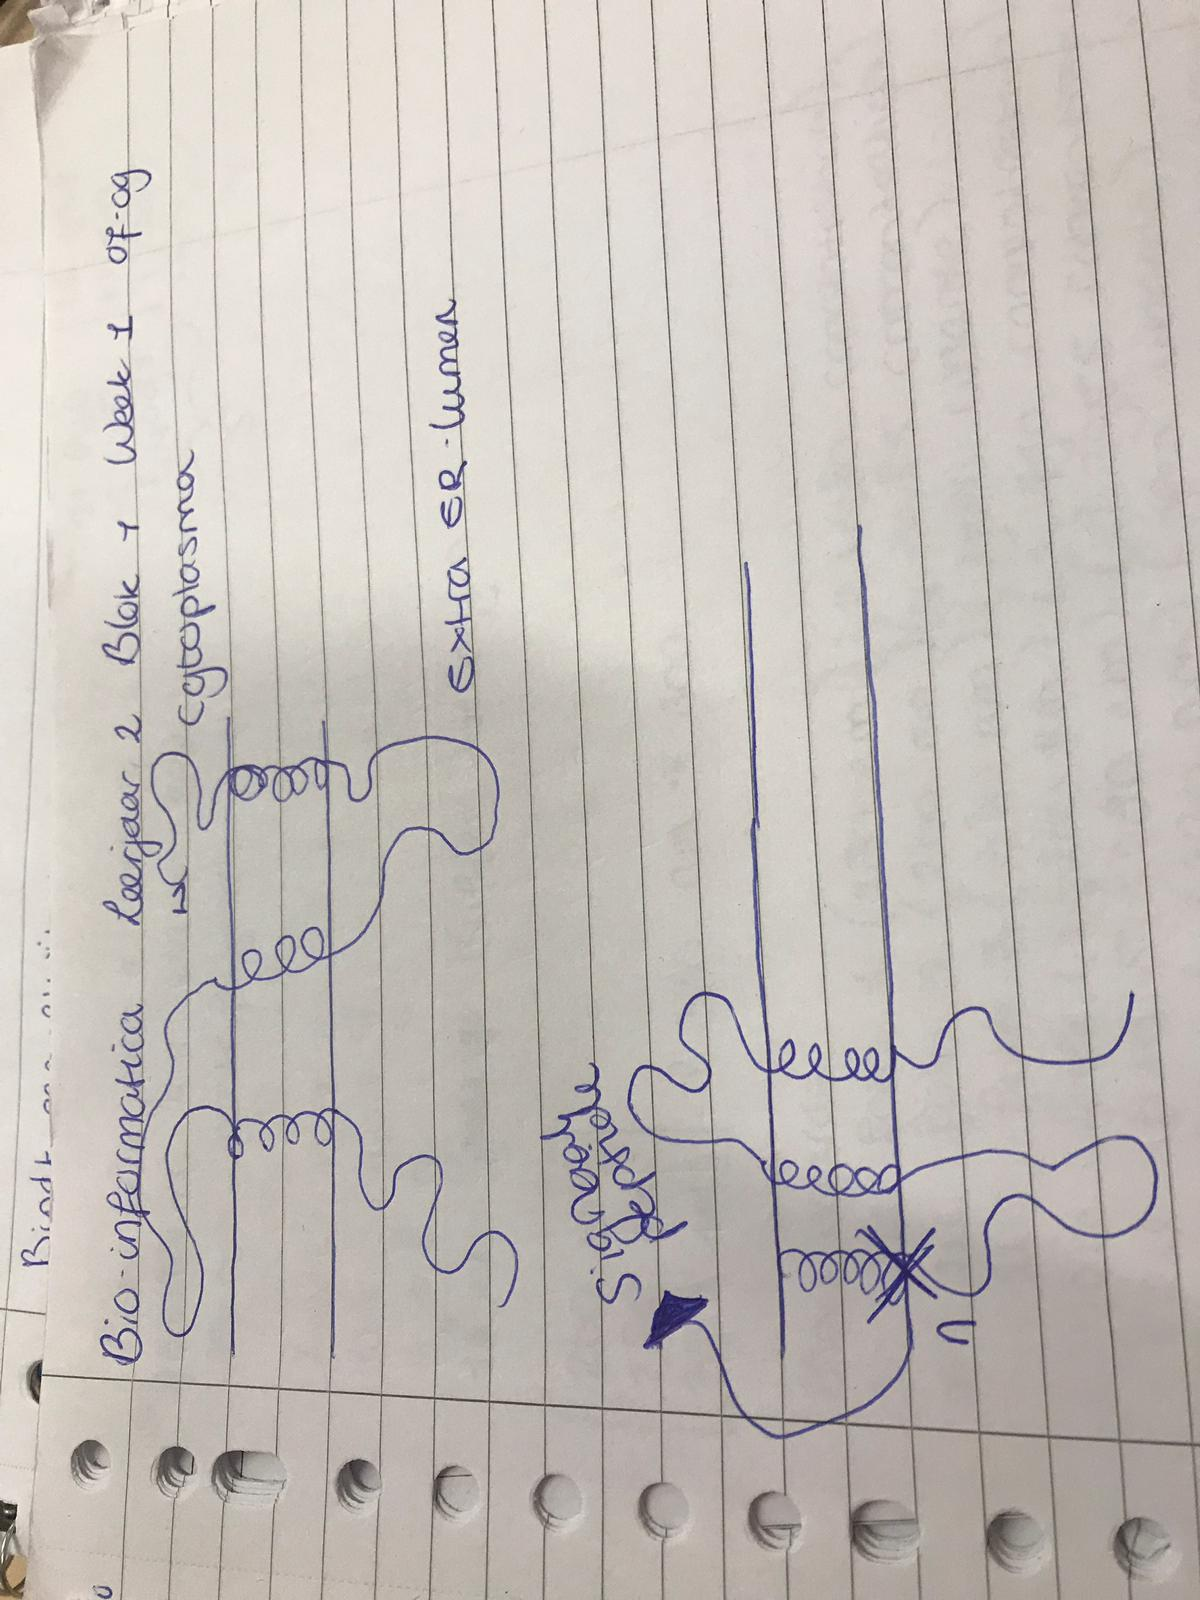 Bio-informatica Leerjaar 2 Blok 1 Week 1 07-09
N
cytoplasma
Extra ER-lumen
Signaal
peptide
n